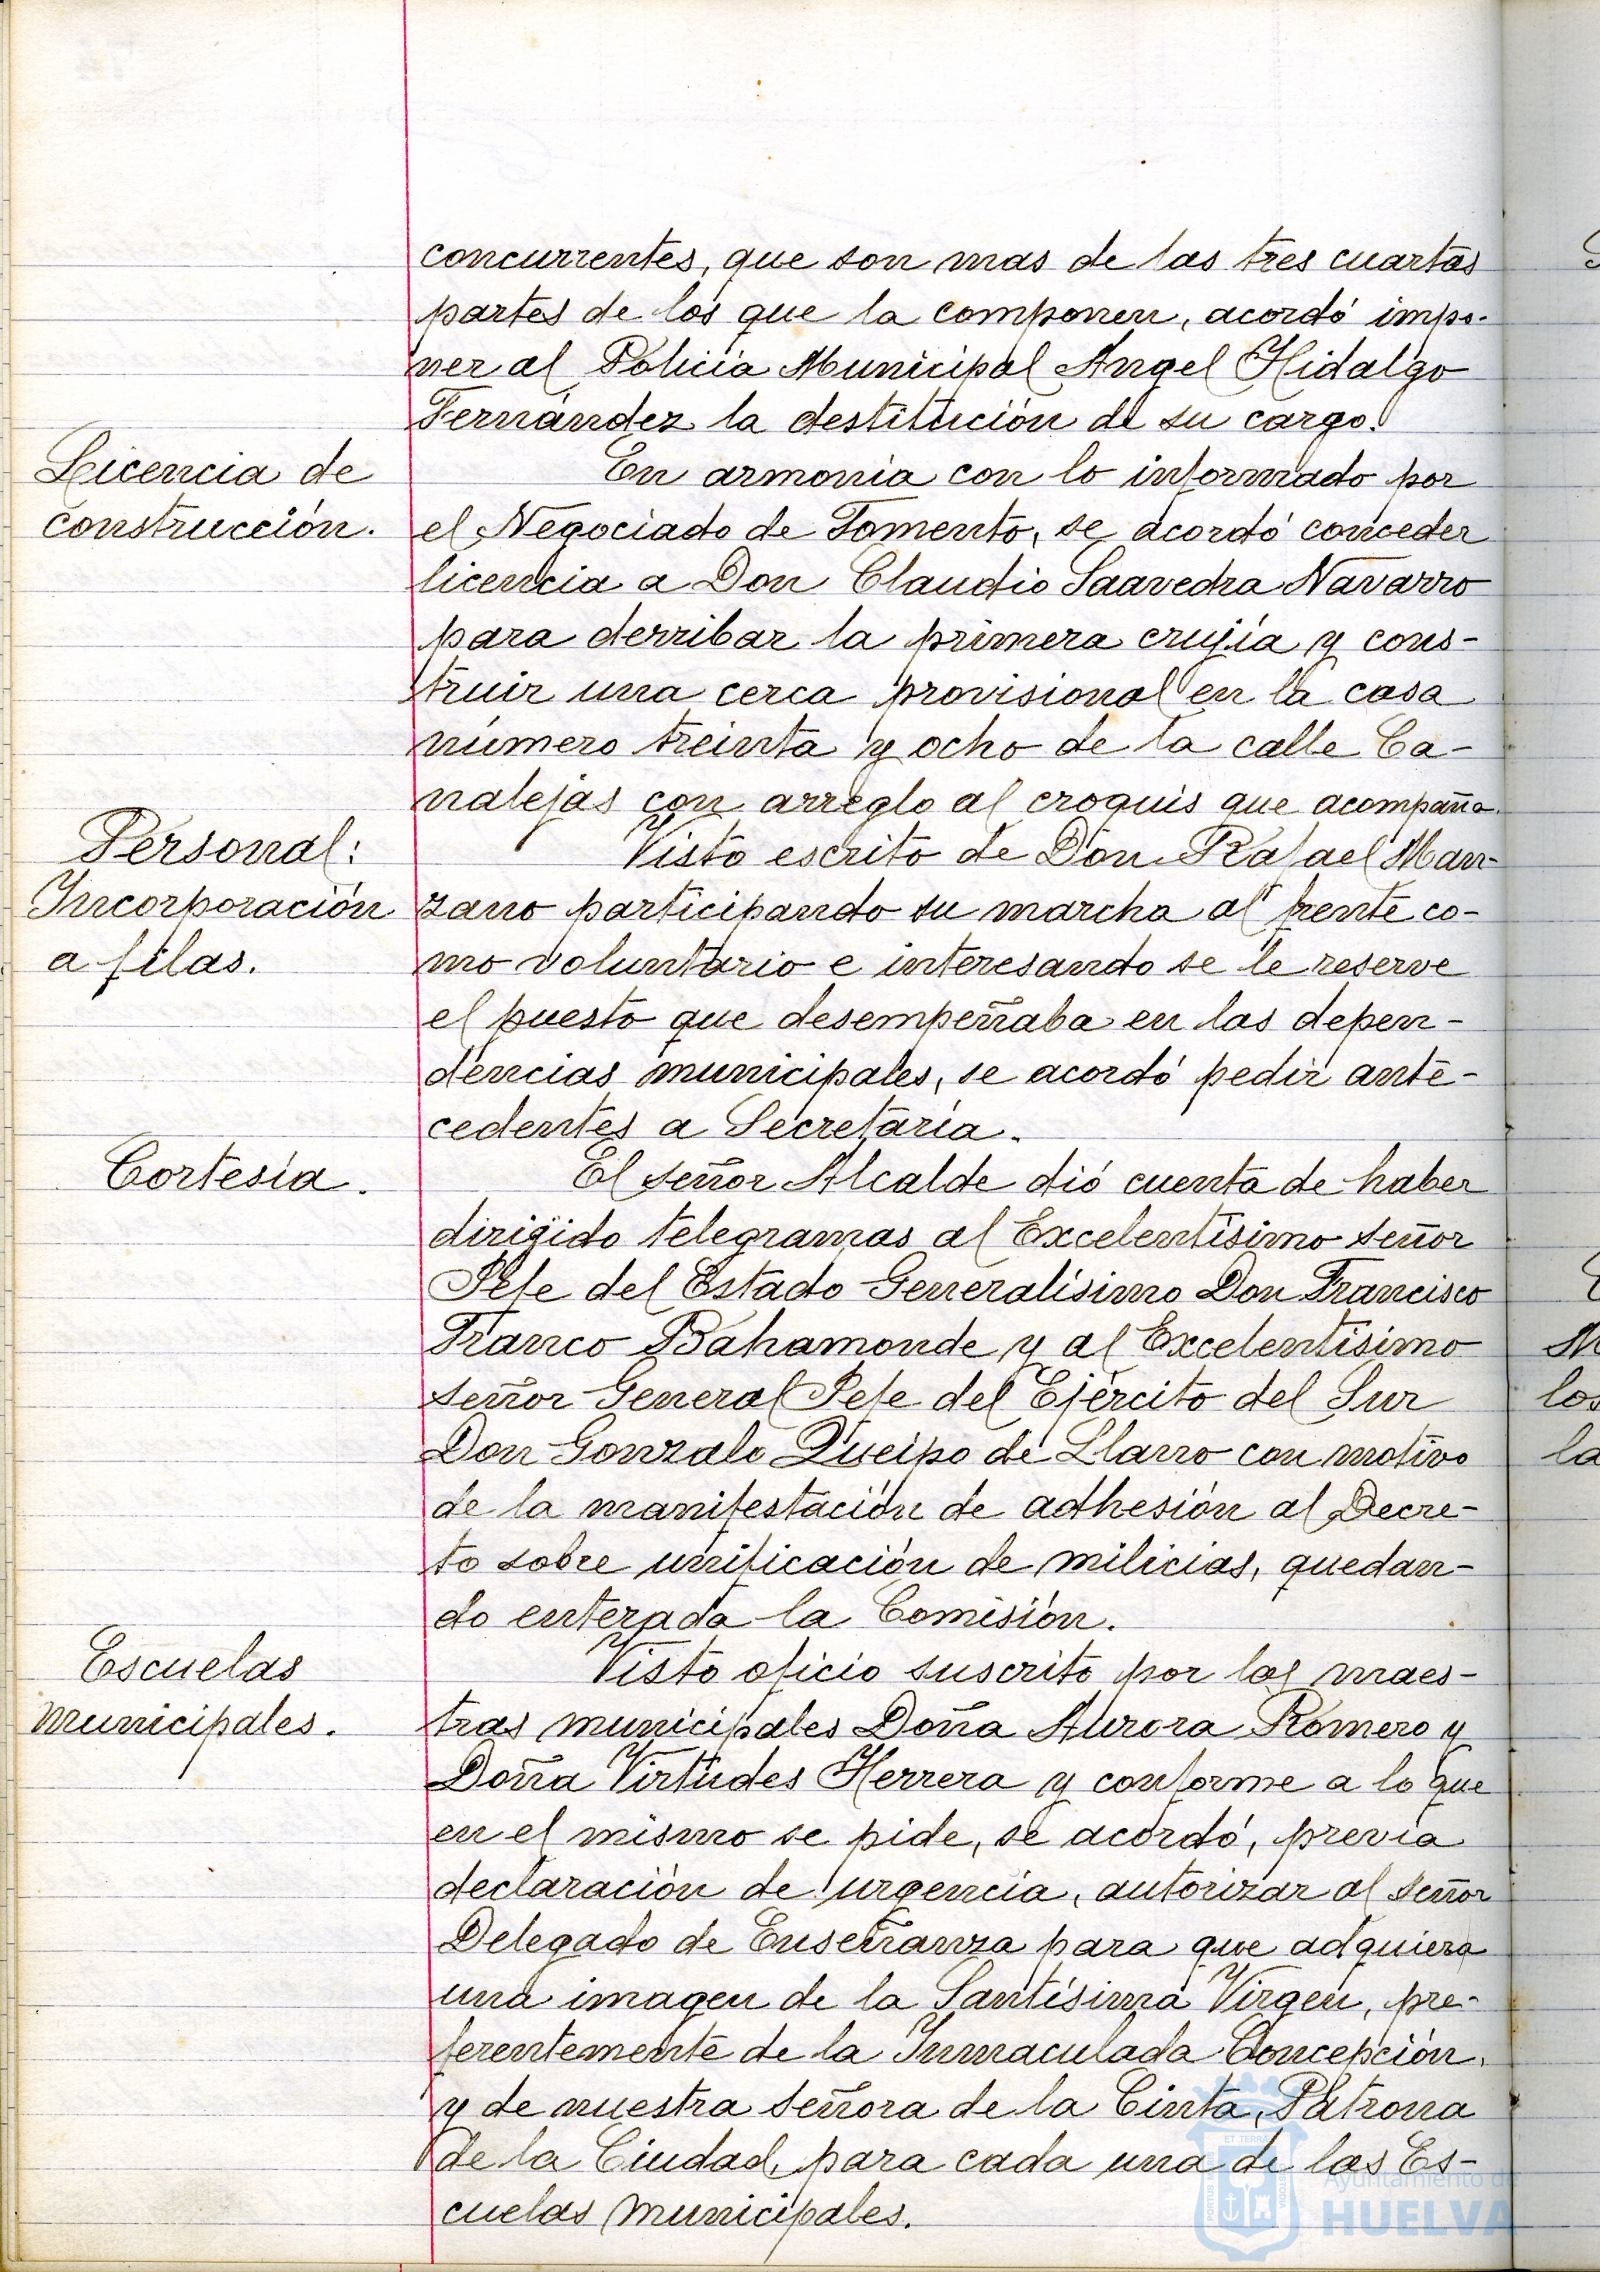 concurrentes, que son mas de las tres cuartas
partes de los que la componen, acordó impo-
ner al Policia Municipal Angel Hidalgo
Fernández la destitución de su cargo.
Licencia de
construcción.
En armonía con lo informado por
el Negociado de Fomento, se acordó conceder
licencia a Don Claudio Saavedra Navarro
para derribar la primera crujía y cons-
truir una cerca provisional en la casa
número treinta y ocho de la calle Ca-
nalejas con arreglo al croquis que acompaña.
Personal:
Incorporación
a filas.
Visto escrito de Don Rafael Man-
zano participando su marcha al frente co-
mo voluntario e interesando se le reserve
el puesto que desempeñaba en las depen-
dencias municipales, se acordó pedir ante-
cedentes a Secretaría.
Cortesía.
El señor Alcalde dió cuenta de haber
dirigido telegramas al Excelentísimo señor
Jefe del Estado Generalísimo Don Francisco
Franco Bahamonde y al Excelentísimo
señor General Jefe del Ejército del Sur
Don Gonzalo Queipo de Llano con motivo
de la manifestación de adhesión al Decre-
to sobre unificación de milicias, quedan-
do enterada la Comisión.
Escuelas
municipales.
Visto oficio suscrito por las maes-
tras municipales Doña Aurora Romero y
Doña Virtudes Herrera y conforme a lo que
en el mismo se pide, se acordó, previa
declaración de urgencia, autorizar al señor
Delegado de Enseñanza para que adquiera
una imagen de la Santísima Virgen, pre-
ferentemente de la Inmaculada Concepción,
y de nuestra señora de la Cinta, Patrona
de la Ciudad, para cada una de las Es-
cuelas municipales.
Ayuntamiento de
HUELVA